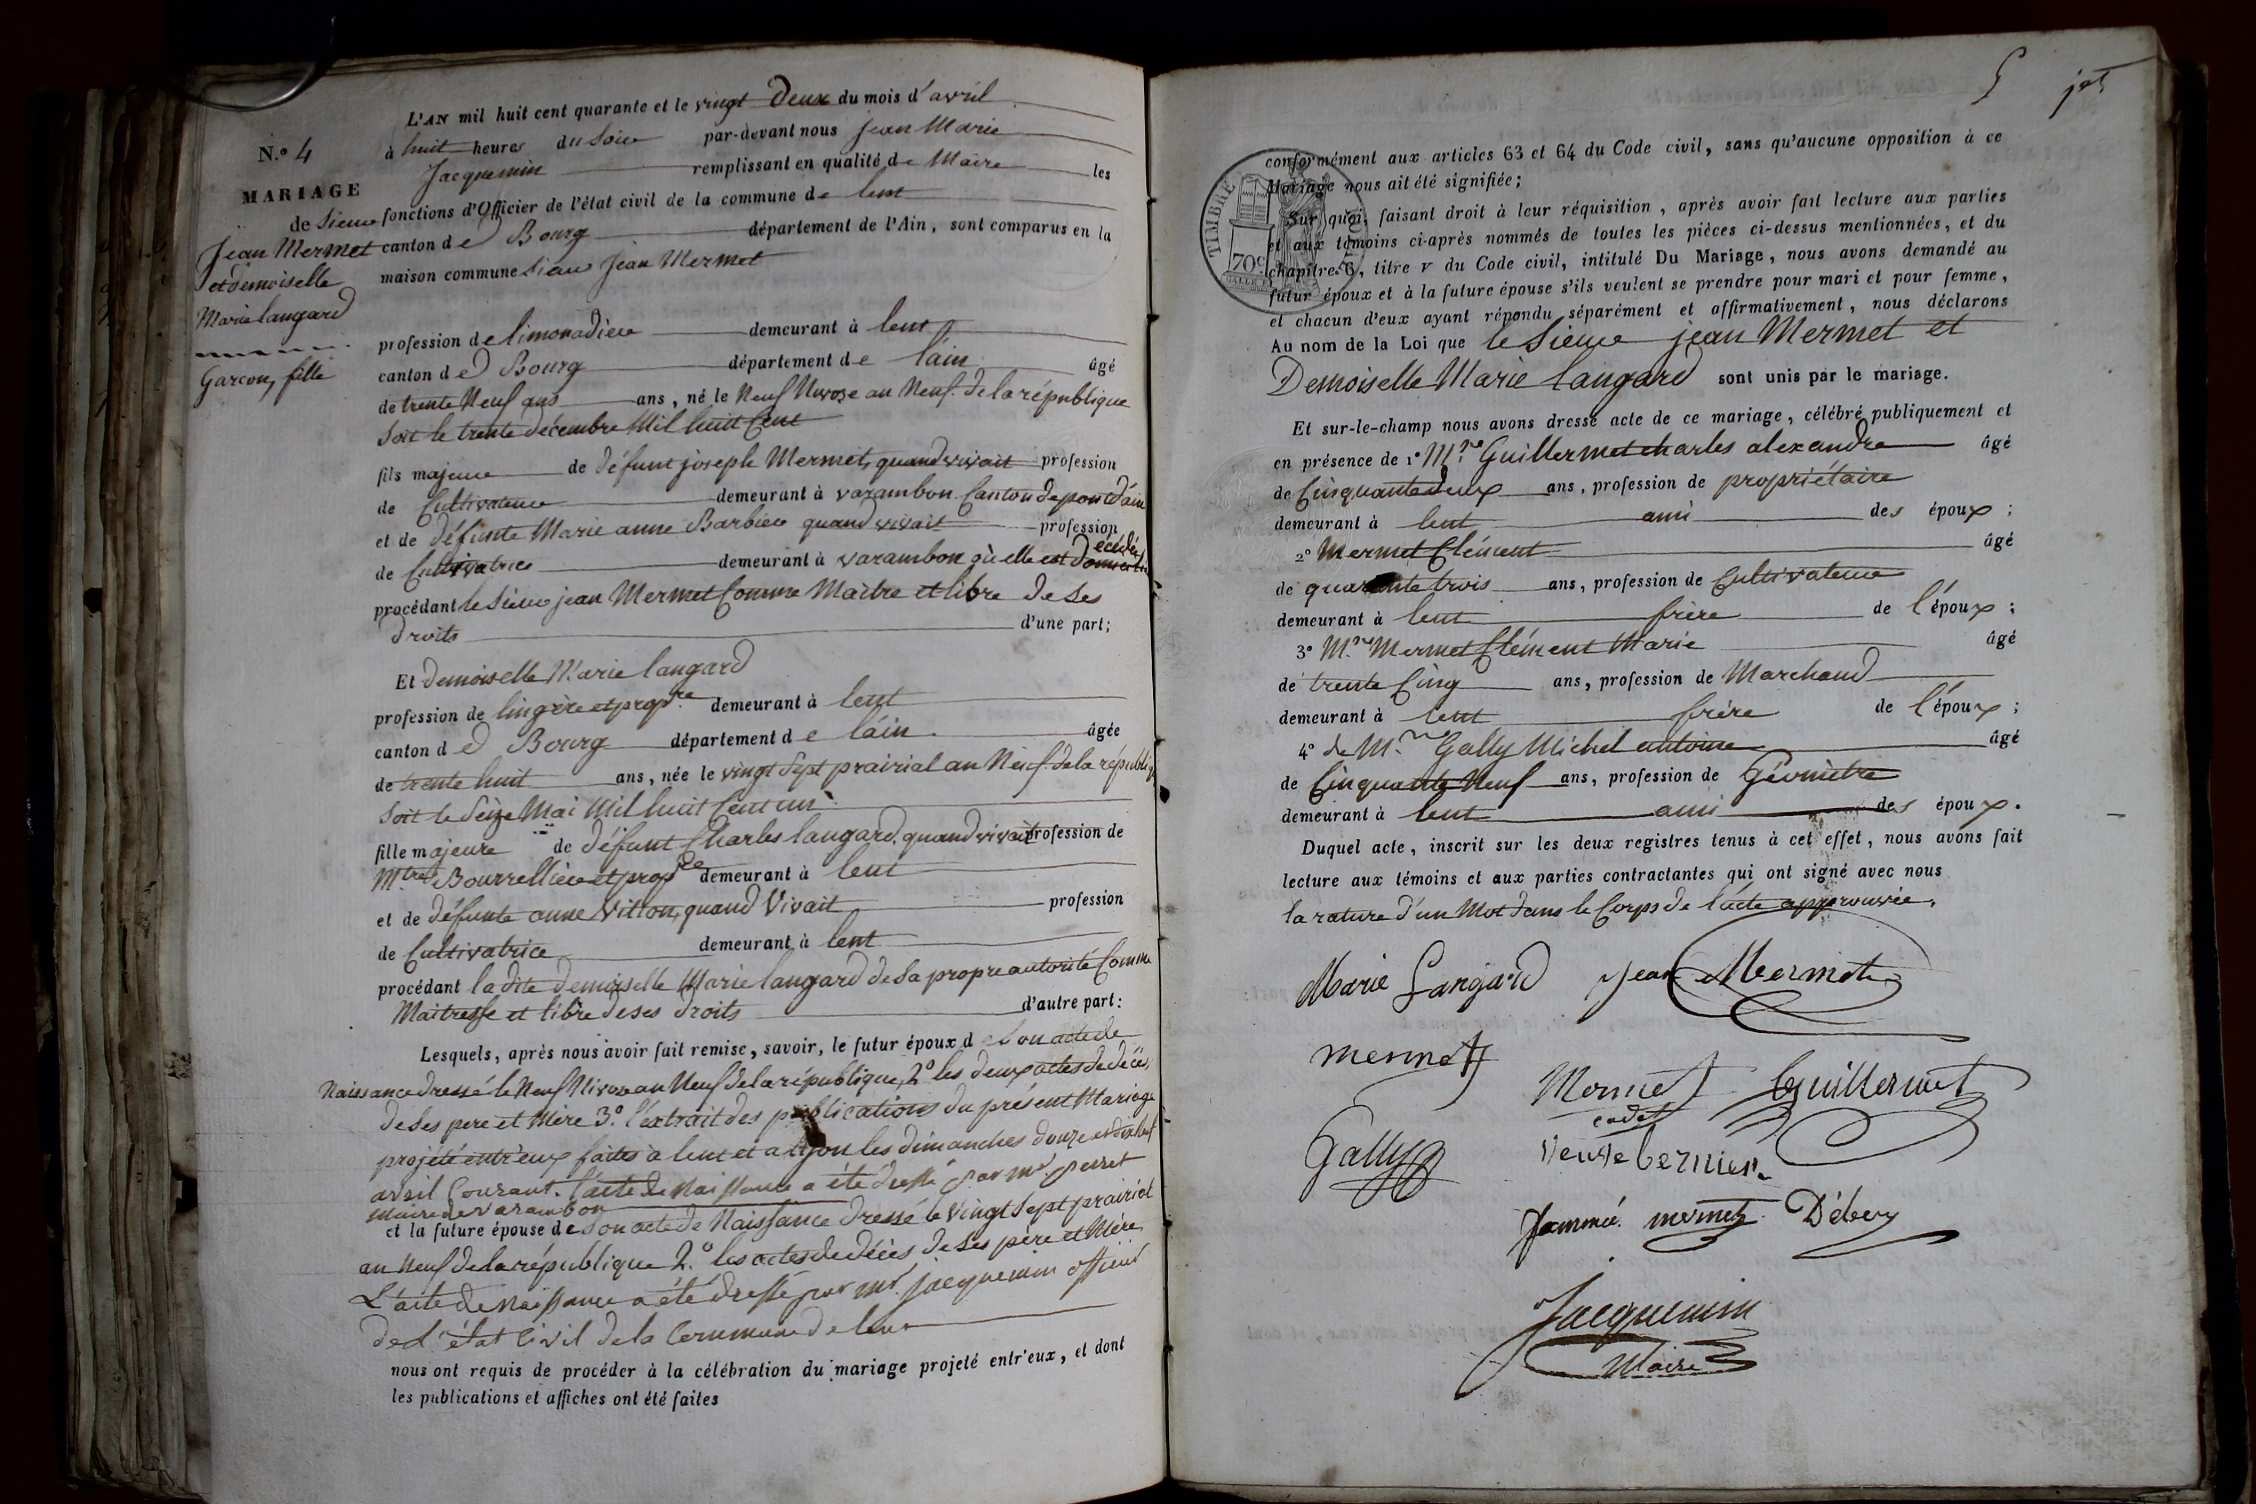 L'AN mil huit cent quarante et le vingt Deux du mois d'avril
N.° 4
à huit heures du Soir par-devant nous Jean Marie
Jacquemin remplissant en qualité de Maire les
MARIAGE
fonctions d'Officier de l'état civil de la commune de lent
de Sieur
Jean Mermet
et demoiselle
Marie langard
Garçon, fille
canton de Bourg département de l'Ain, sont comparus en la
maison commune Sieur Jean Mermet
profession de limonadier demeurant à lent
canton de Bourg département de l'ain âgé
de trente Neuf ans ans, né le Neuf Nivose an Neuf de la république
Soit le trente décembre Mil huit Cent
fils majeur de défunt joseph Mermet, quand vivait profession
de Cultivateur demeurant à varambon Canton de pont d'ain
et de défunte Marie anne Barbier quand vivait profession
de Cultivatrice demeurant à varambon où elle est décédée
procédant le Sieur jean Mermet Comme Maître et libre de Ses
droits d'une part;
Et demoiselle Marie langard
profession de lingère et prop.re demeurant à lent
canton de Bourg département de l'ain âgée
de trente huit ans, née le vingt Sept prairial an Neuf de la républiq
Soit le Seize Mai Mil huit Cent un
fille majeure de défunt Charles langard, quand vivait profession de
M.tre Bourrellier et prop.re demeurant à lent
et de défunte anne Vitton, quand Vivait profession
de Cultivatrice demeurant à lent
procédant la dite Demoiselle Marie langard de Sa propre autorité Comme
Maitresse et libre de ses droits d'autre part:
Lesquels, après nous avoir fait remise, savoir, le futur époux de Son acte de
Naissance dressé le Neuf Nivose an Neuf de la république, 2° les deux actes de décès
de Ses pere et Mère 3° l'extrait des publications du présent Mariage
projeté entr'eux faites à lent et a Lyon les dimanches douze et dix Neuf
avril Courant. l'acte de Naissance a été dressé par Mr. perret
Maire de Varambon
et la future épouse de Son acte de Naissance dressé le Vingt Sept prairial
an Neuf de la république 2.° les actes de décès de Ses père et Mère
L'acte de Naissance a été dressé par Mr. jacquemin officier
de l'état Civil de la Commune de lent
nous ont requis de procéder à la célébration du mariage projeté entr'eux, et dont
les publications et affiches ont été faites
5
TIMBRE
70c
conformément aux articles 63 et 64 du Code civil, sans qu'aucune opposition à ce
Mariage nous ait été signifiée;
Sur quoi, faisant droit à leur réquisition, après avoir fait lecture aux parties
et aux témoins ci-après nommés de toutes les pièces ci-dessus mentionnées, et du
chapitre 6, titre v du Code civil, intitulé Du Mariage, nous avons demandé au
futur époux et à la future épouse s'ils veulent se prendre pour mari et pour femme,
et chacun d'eux ayant répondu séparément et affirmativement, nous déclarons
Au nom de la Loi que le Sieur jean Mermet et
Demoiselle Marie langard sont unis par le mariage.
Et sur-le-champ nous avons dressé acte de ce mariage, célébré publiquement et
en présence de 1° M.re Guillermet charles alexandre âgé
de Cinquante deux ans, profession de propriétaire
demeurant à lent ami des époux;
2° Mermet Clément âgé
de quarante trois ans, profession de Cultivateur
demeurant à lent frère de l'époux;
3° M.re Mermet Clément Marie âgé
de trente Cinq ans, profession de Marchand
demeurant à lent frère de l'époux;
4° de M.re Gally Michel antoine âgé
de Cinquante Neuf ans, profession de Géomètre
demeurant à lent ami des époux.
Duquel acte, inscrit sur les deux registres tenus à cet effet, nous avons fait
lecture aux témoins et aux parties contractantes qui ont signé avec nous
la rature d'un Mot dans le Corps de l'acte approuvée.
Marie Langard Jean Mermet
mermet
Mermet Guillermet
cadet
Gally
veuve bernier
femme mermet Débery
Jacquemin
Maire